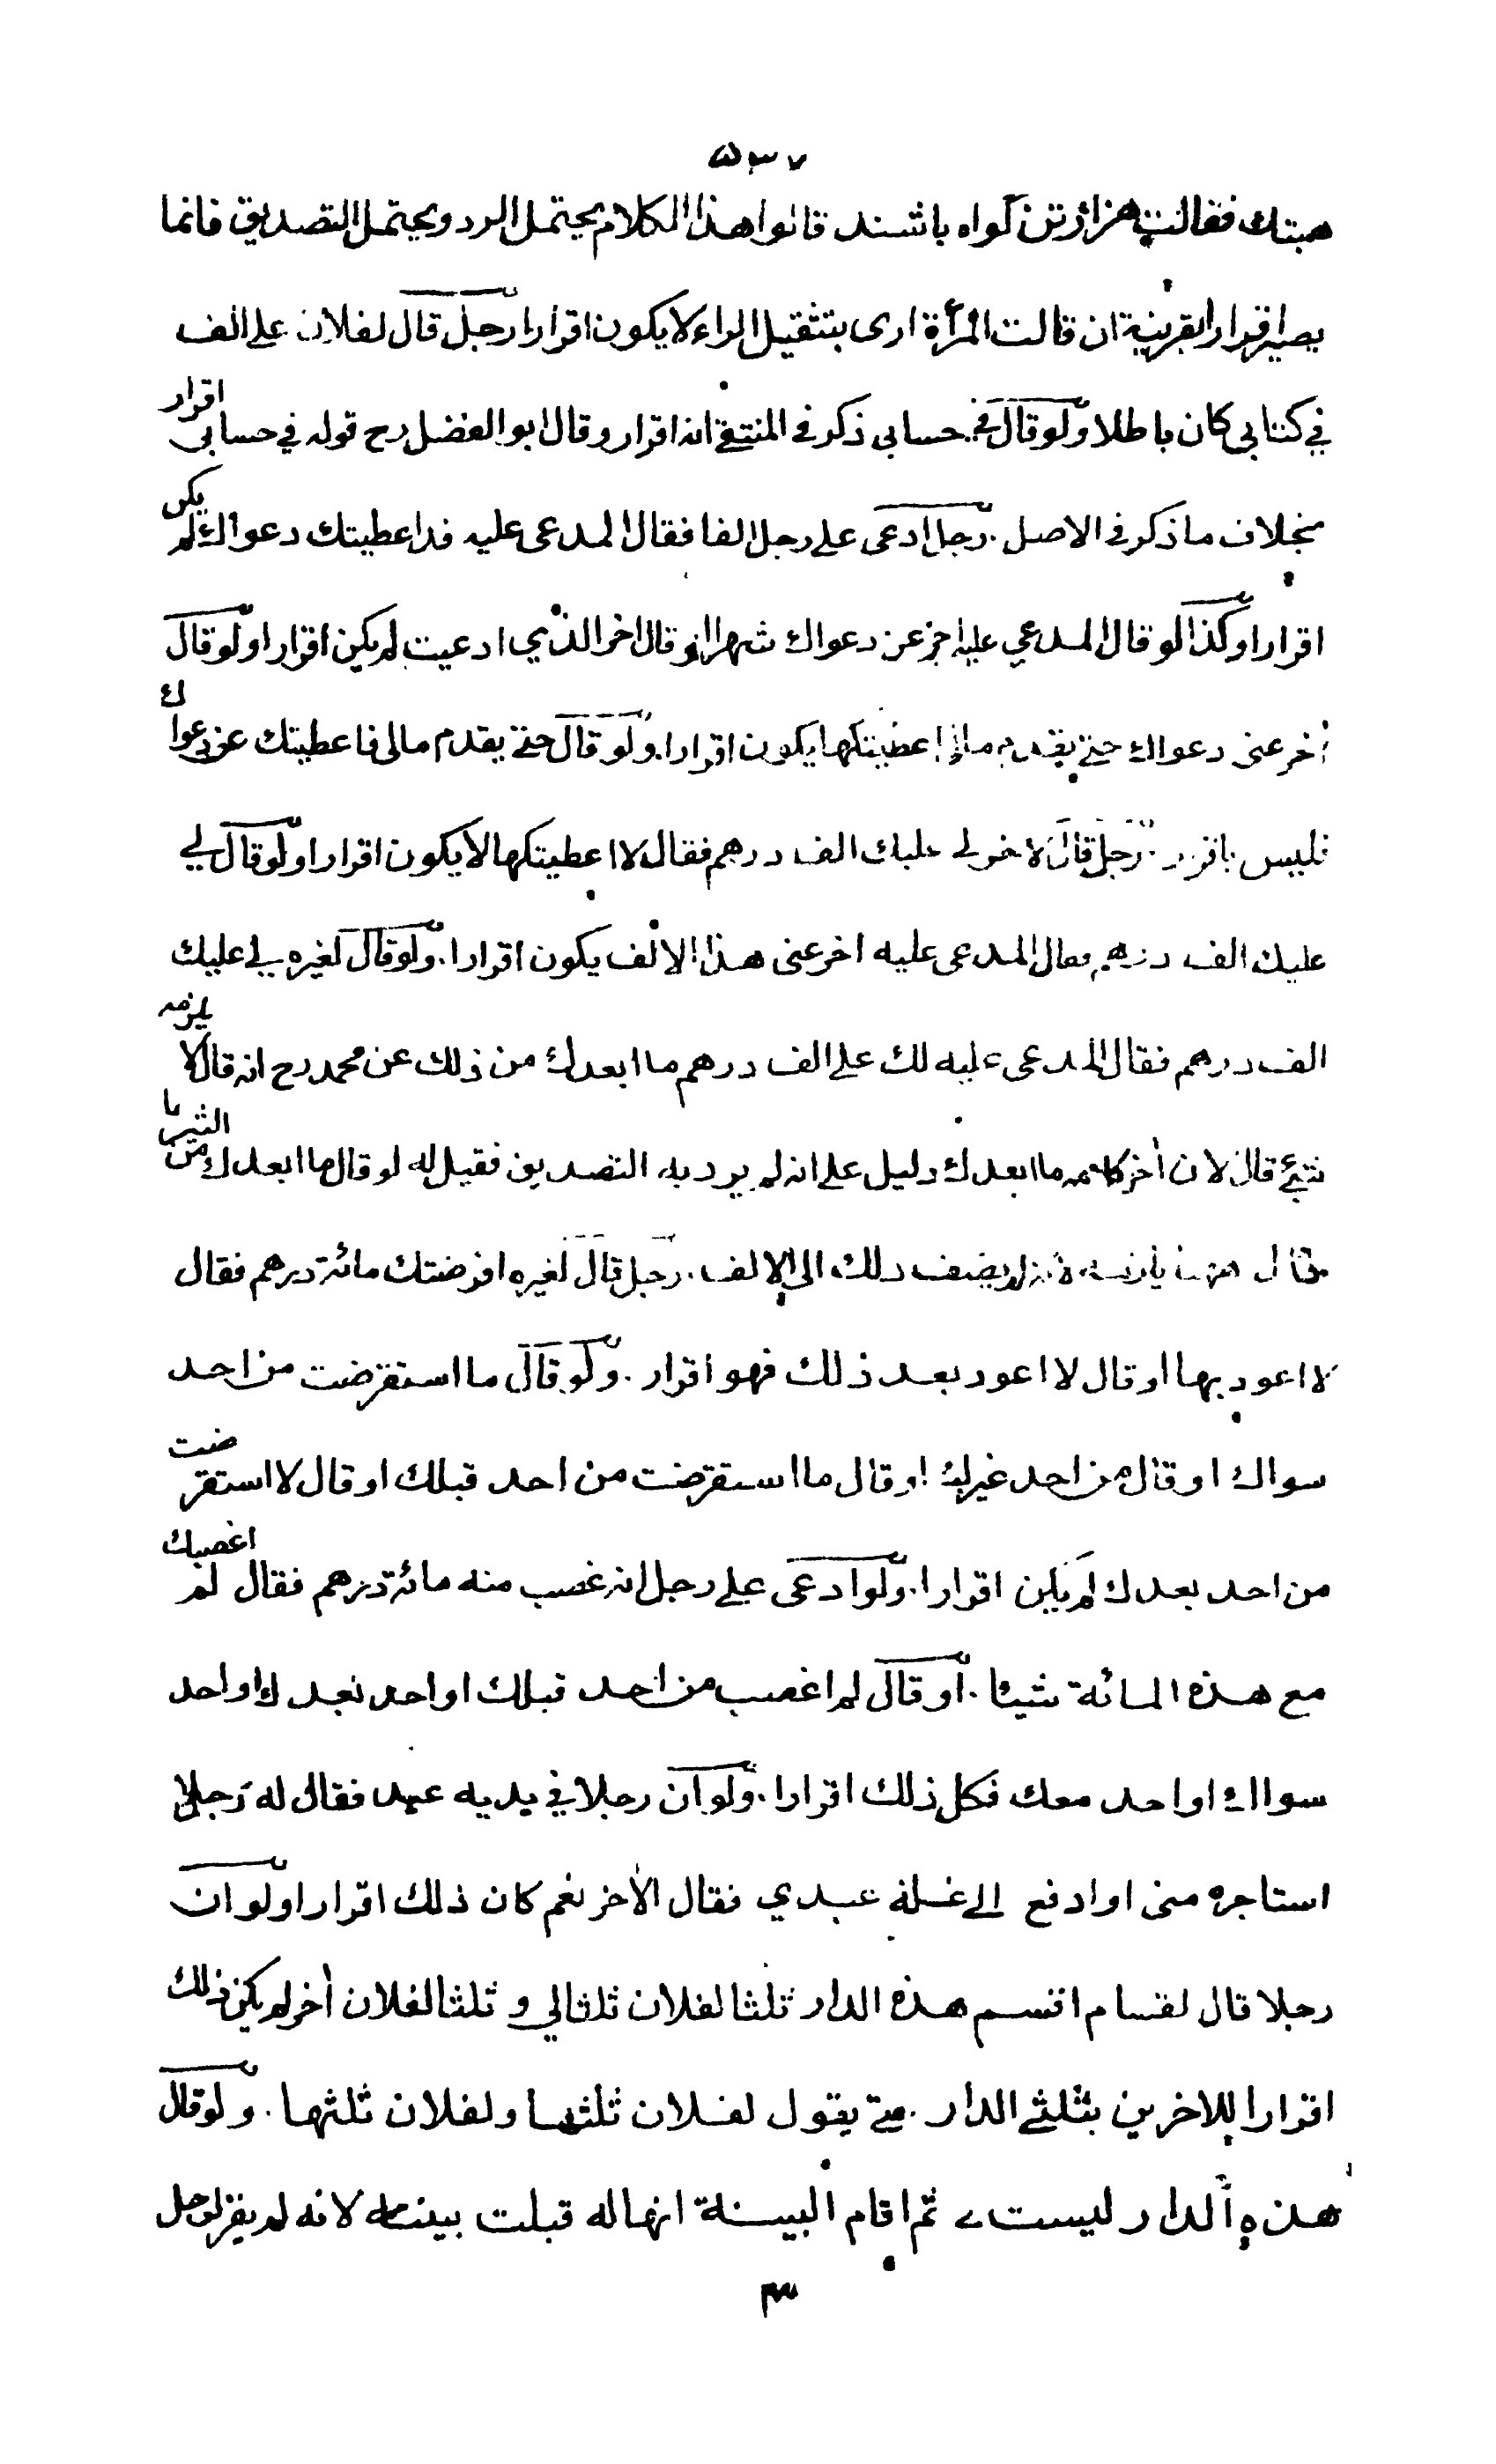 ٥٣٧
هبتك فقالت هزارتن كواه باشند قالوا هذا الكلام يحتمل الرد ويحتمل التصديق فانما
يصير اقرارا بقرينة ان قالت المرأة ارى بتثقيل الراء لا يكون اقرارا رجل قال لفلان على الف
في كتابي كان باطلا ولو قال في حسابي ذكر في المنتقى انه اقرار وقال ابو الفضل رح قوله في حسابي اقرار
بخلاف ما ذكر في الاصل . رجل ادعى على رجل الفا فقال المدعى عليه قد اعطيتك دعواك لم يكن
اقرارا وكذا لو قال المدعي عليه اخر عن دعواك شهرا او قال اخر الذي ادعيت لم يكن اقرارا ولو قال
أخر عنى دعواك حتى يقدم مالي اعطيتكها يكون اقرارا ولو قال حتى يقدم مالى فاعطيتك عن دعواك
فليس باقرار . رجل قال لاخر لي عليك الف درهم فقال لا اعطيتكها لا يكون اقرارا ولو قال لي
عليك الف درهم فقال المدعى عليه اخر عنى هذا الالف يكون اقرارا . ولو قال لغيره لي عليك
الف درهم فقال المدعى عليه لك على الف درهم ما ابعدك من ذلك عن محمد رح انه قال لا يلزمه
شئ قال لان أخر كلامه ما ابعدك دليل على انه لم يرد به التصديق فقيل له لو قال ما ابعدك من الثريا
قال يلزمه لانه لم يضف ذلك الى الالف . رجل قال لغيره اقرضتك مائة درهم فقال
لا اعود بها او قال لا اعود بعد ذلك فهو اقرار . ولو قال ما استقرضت من احد
سواك او قال من احد غيرك او قال ما استقرضت من احد قبلك او قال لا استقرضت
من احد بعدك لم يكن اقرارا . ولو ادعى على رجل انه غصب منه مائة درهم فقال لم اغصبك
مع هذه المائة شيئا . او قال لم اغصب من احد قبلك او احد بعدك او احد
سواك او احد معك فكل ذلك اقرارا . ولو ان رجلا في يديه عبد فقال له رجل
استاجره منى او ادفع الى غلة عبدي فقال الأخر نعم كان ذلك اقرارا ولو ان
رجلا قال لقسام اقسم هذه الدار ثلثا لفلان ثلثا لي و ثلثا لفلان أخر لم يكن ذلك
اقرارا للاخرين بثلثى الدار . حتى يقول لفلان ثلثها ولفلان ثلثها . ولو قال
هذه الدار ليست لي ثم اقام البينة انها له قبلت بينته لانه لم يقر لرجل